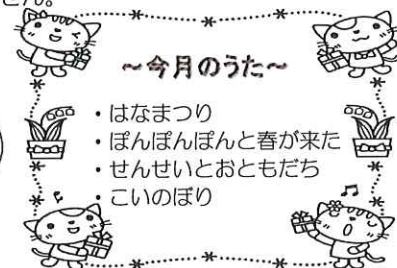 せん。
～今月のうた～
・はなまつり
・ぽんぽんぽんと春が来た
・せんせいとおともだち
・こいのぼり